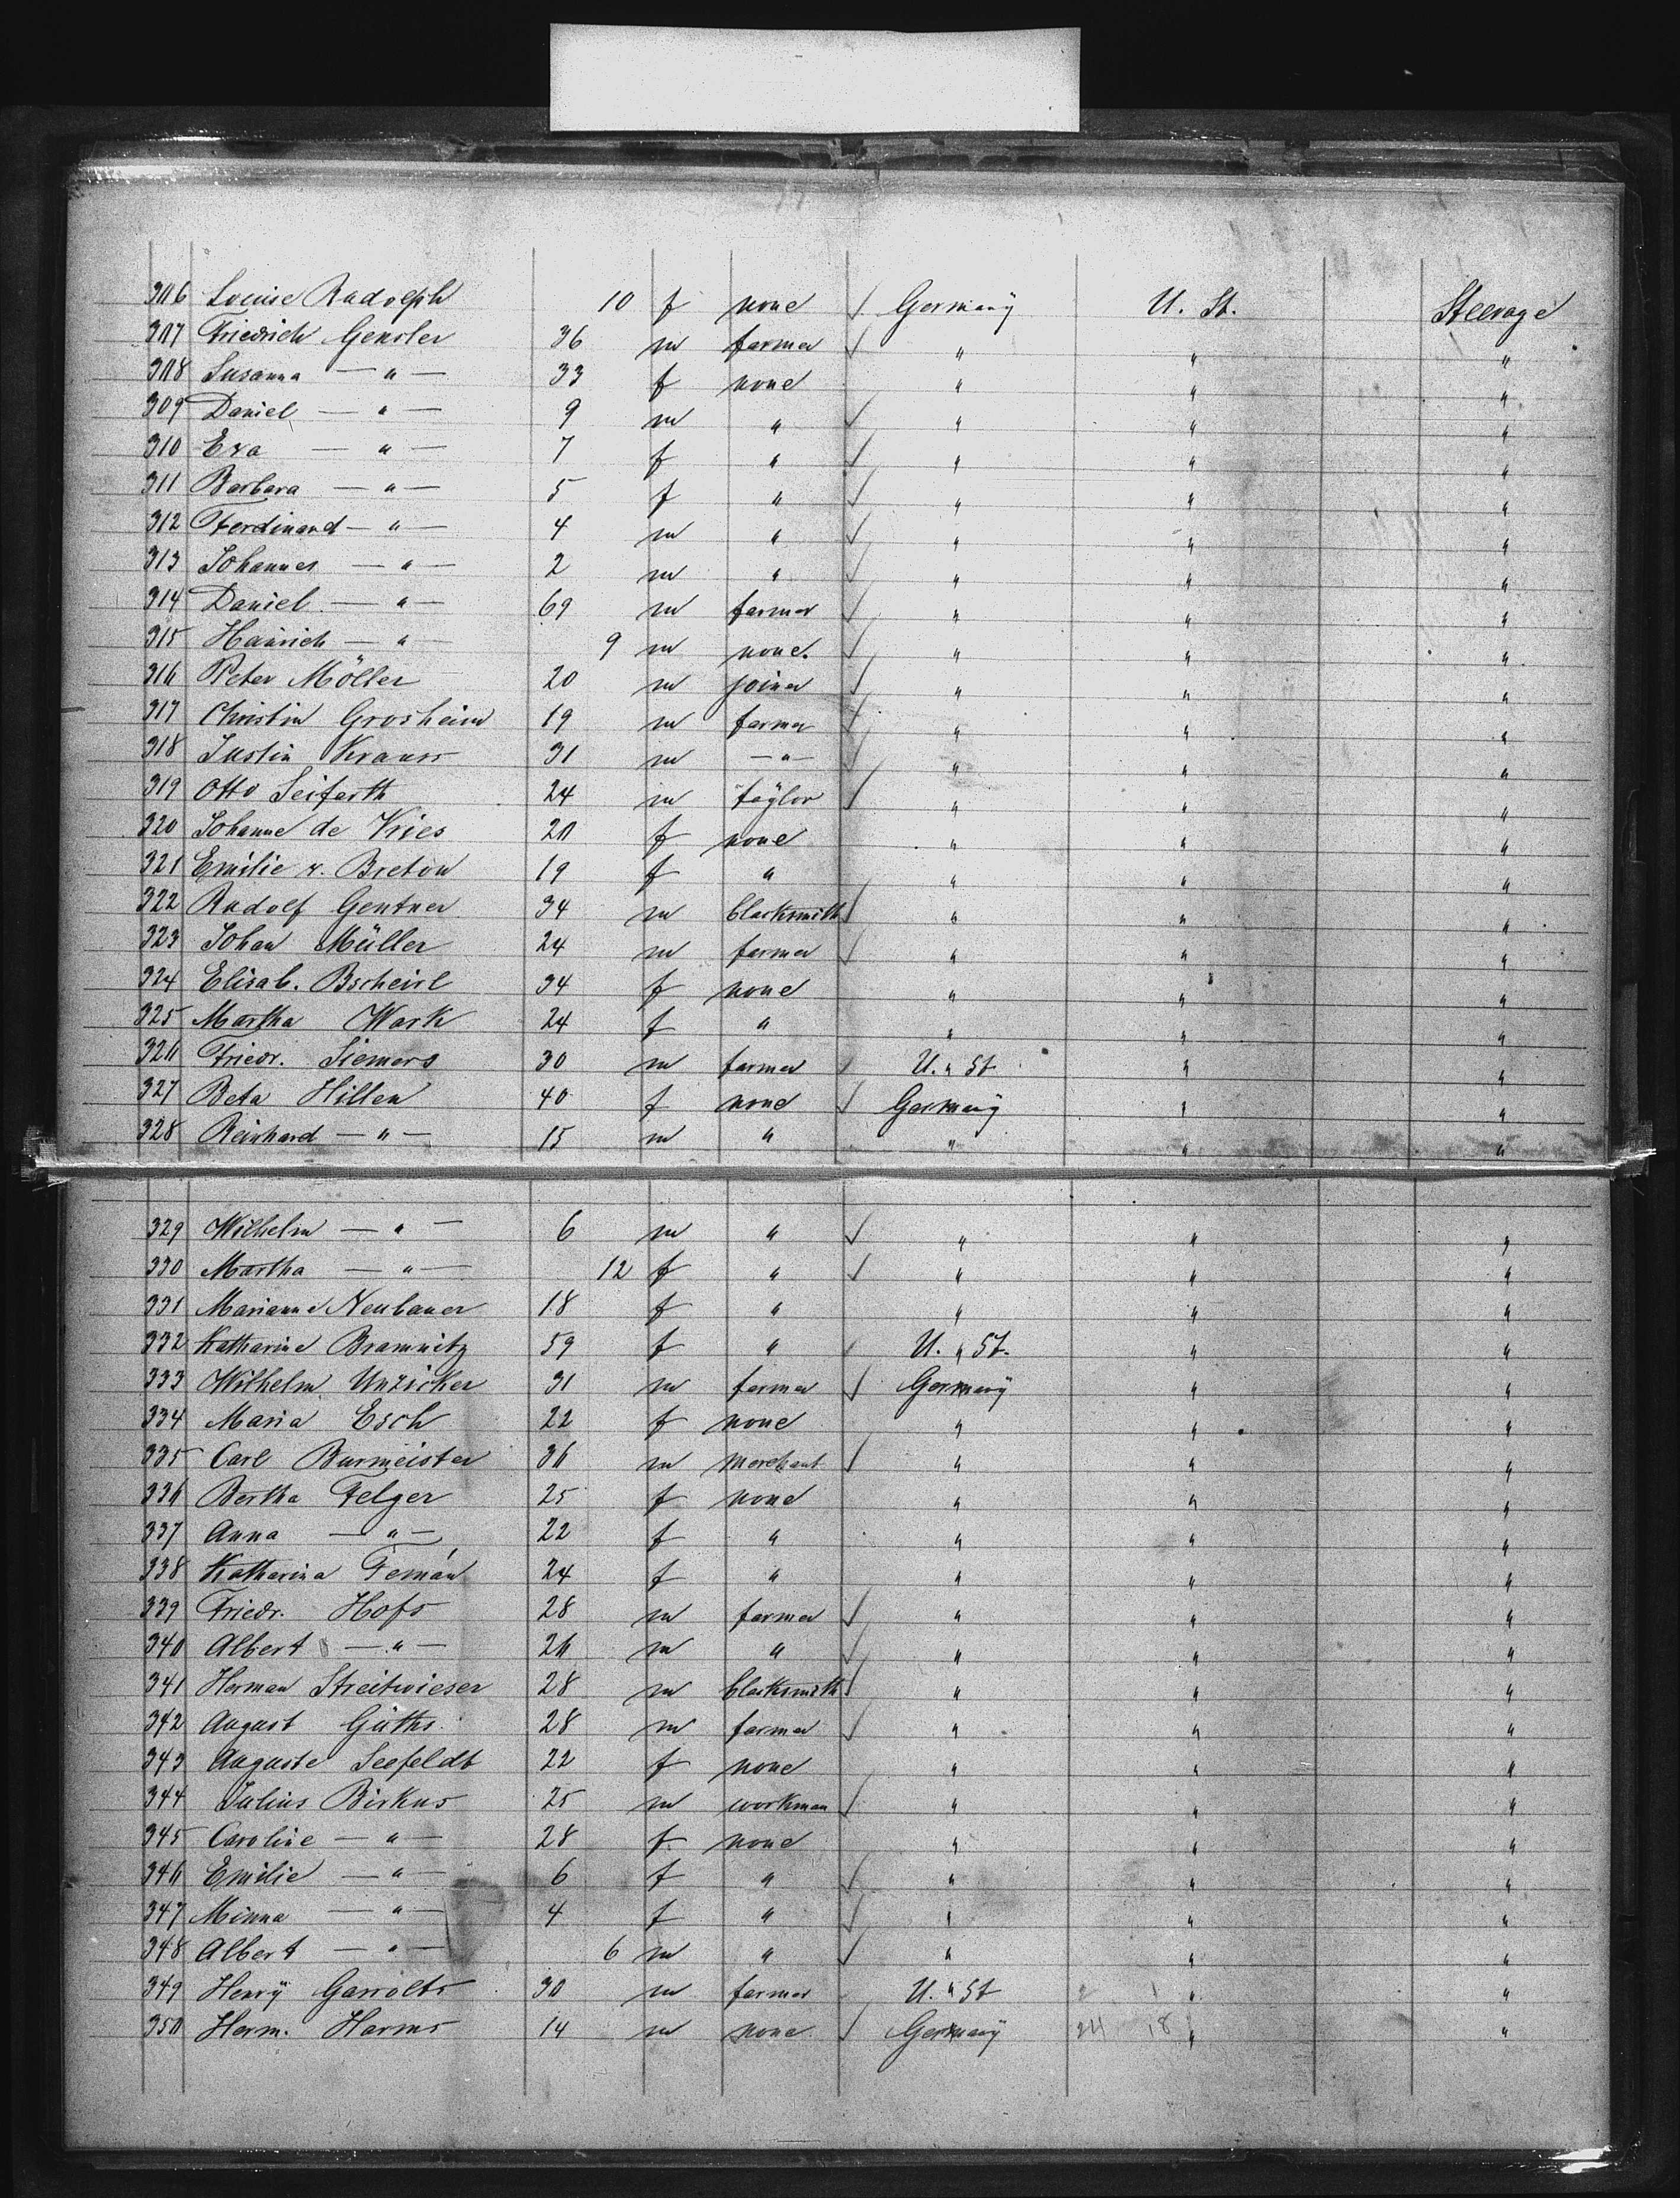 306 Louise Rudolph 10 f none Germany U. St. Steerage
307 Friedrich Gensler 36 m farmer " " "
308 Susanna — " — 33 f none " " "
309 Daniel — " — 9 m " " " "
310 Eva — " — 7 f " " " "
311 Barbara — " — 5 f " " " "
312 Ferdinand — " — 4 m " " " "
313 Johannes — " — 2 m " " " "
314 Daniel — " — 69 m farmer " " "
315 Heinrich — " — 9 m none. " " "
316 Peter Möller 20 m joiner " " "
317 Christin Grosheim 19 m farmer " " "
318 Justin Krauss 31 m — " — " " "
319 Otto Seifarth 24 m taylor " " "
320 Johanne de Vries 20 f none " " "
321 Emilie v. Breton 19 f " " " "
322 Rudolf Gentner 34 m blacksmith " " "
323 Johan Müller 24 m farmer " " "
324 Elisab. Bscheirl 34 f none " " "
325 Martha Wark 24 f " " " "
326 Friedr. Siemers 30 m farmer U. " St " "
327 Beta Hillen 40 f none Germany " "
328 Reinhard — " — 15 m " " " "
329 Wilhelm — " — 6 m " " " "
330 Martha — " — 12 f " " " "
331 Marianne Neubauer 18 f " " " "
332 Katharine Bramnitz 59 f " U. " St. " "
333 Wilhelm Unzicker 31 m farmer Germany " "
334 Maria Esch 22 f none " " "
335 Carl Burmeister 36 m merchant " " "
336 Bertha Felger 25 f none " " "
337 Anna — " — 22 f " " " "
338 Katharina Femán 24 f " " " "
339 Friedr. Hofs 28 m farmer " " "
340 Albert — " — 26 m " " " "
341 Herman Streitwieser 28 m blacksmith " " "
342 August Güths 28 m farmer " " "
343 Auguste Seefeldt 22 f none " " "
344 Julius Birkus 25 m workman " " "
345 Caroline — " — 28 f. none " " "
346 Emilie — " — 6 f " " " "
347 Minna — " — 4 f " " " "
348 Albert — " — 6 m " " " "
349 Henry Garrolts 30 m farmer U. " St 2 1 " "
350 Herm. Harms 14 m none Germany 24 18 " "